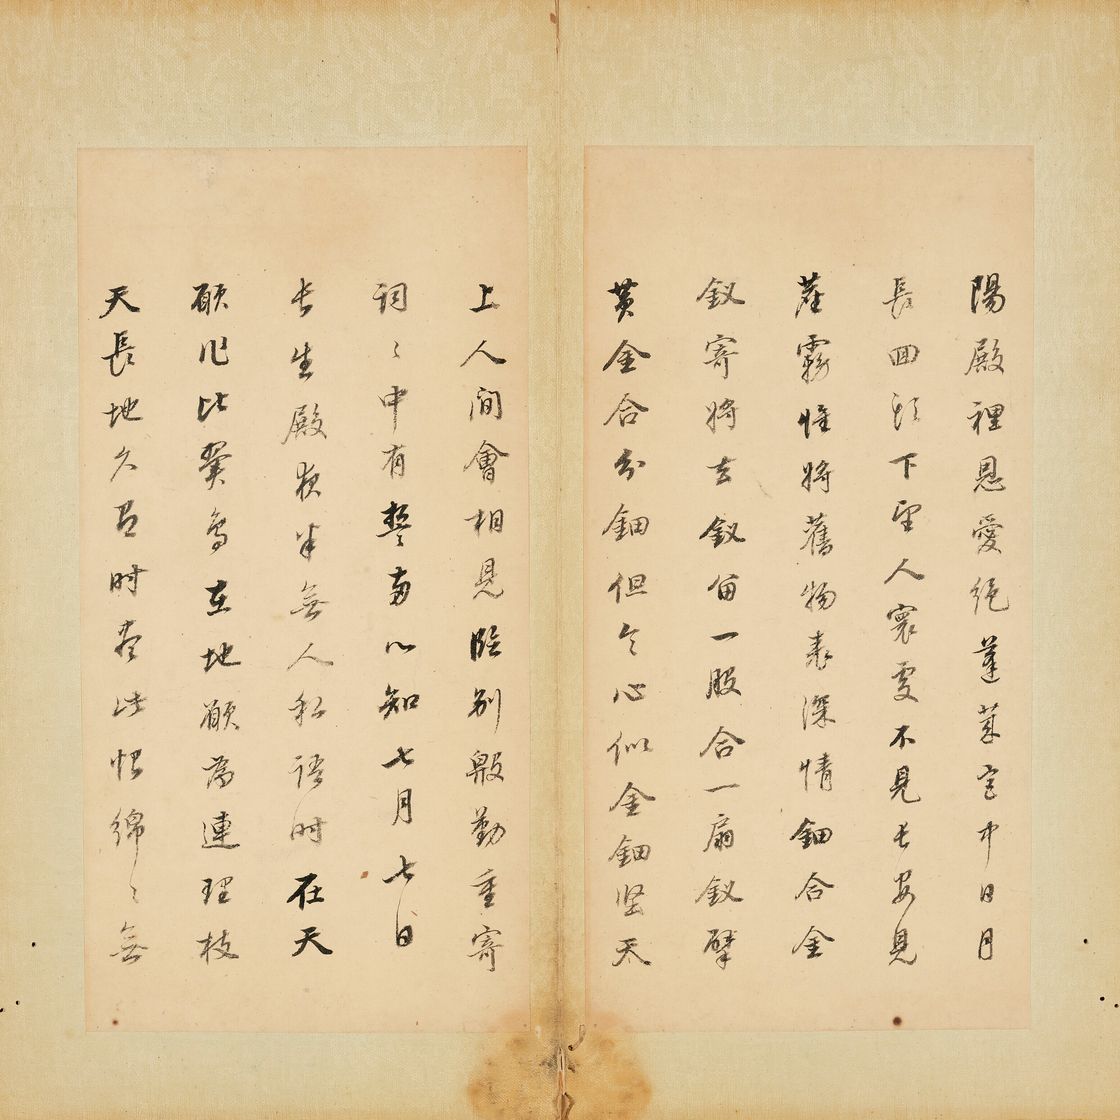 陽殿裡恩愛絕蓬萊宮中日月
長囬頭下望人寰處不見長安見
塵霧惟將舊物表深情鈿合金
釵寄將去釵留一股合一扇釵擘
黃金合分鈿但令心似金鈿堅天
上人間會相見臨別殷勤重寄
詞〻中有誓兩心知七月七日
長生殿夜半無人私語時在天
願作比翼鳥在地願為連理枝
天長地久有時盡此恨綿〻無